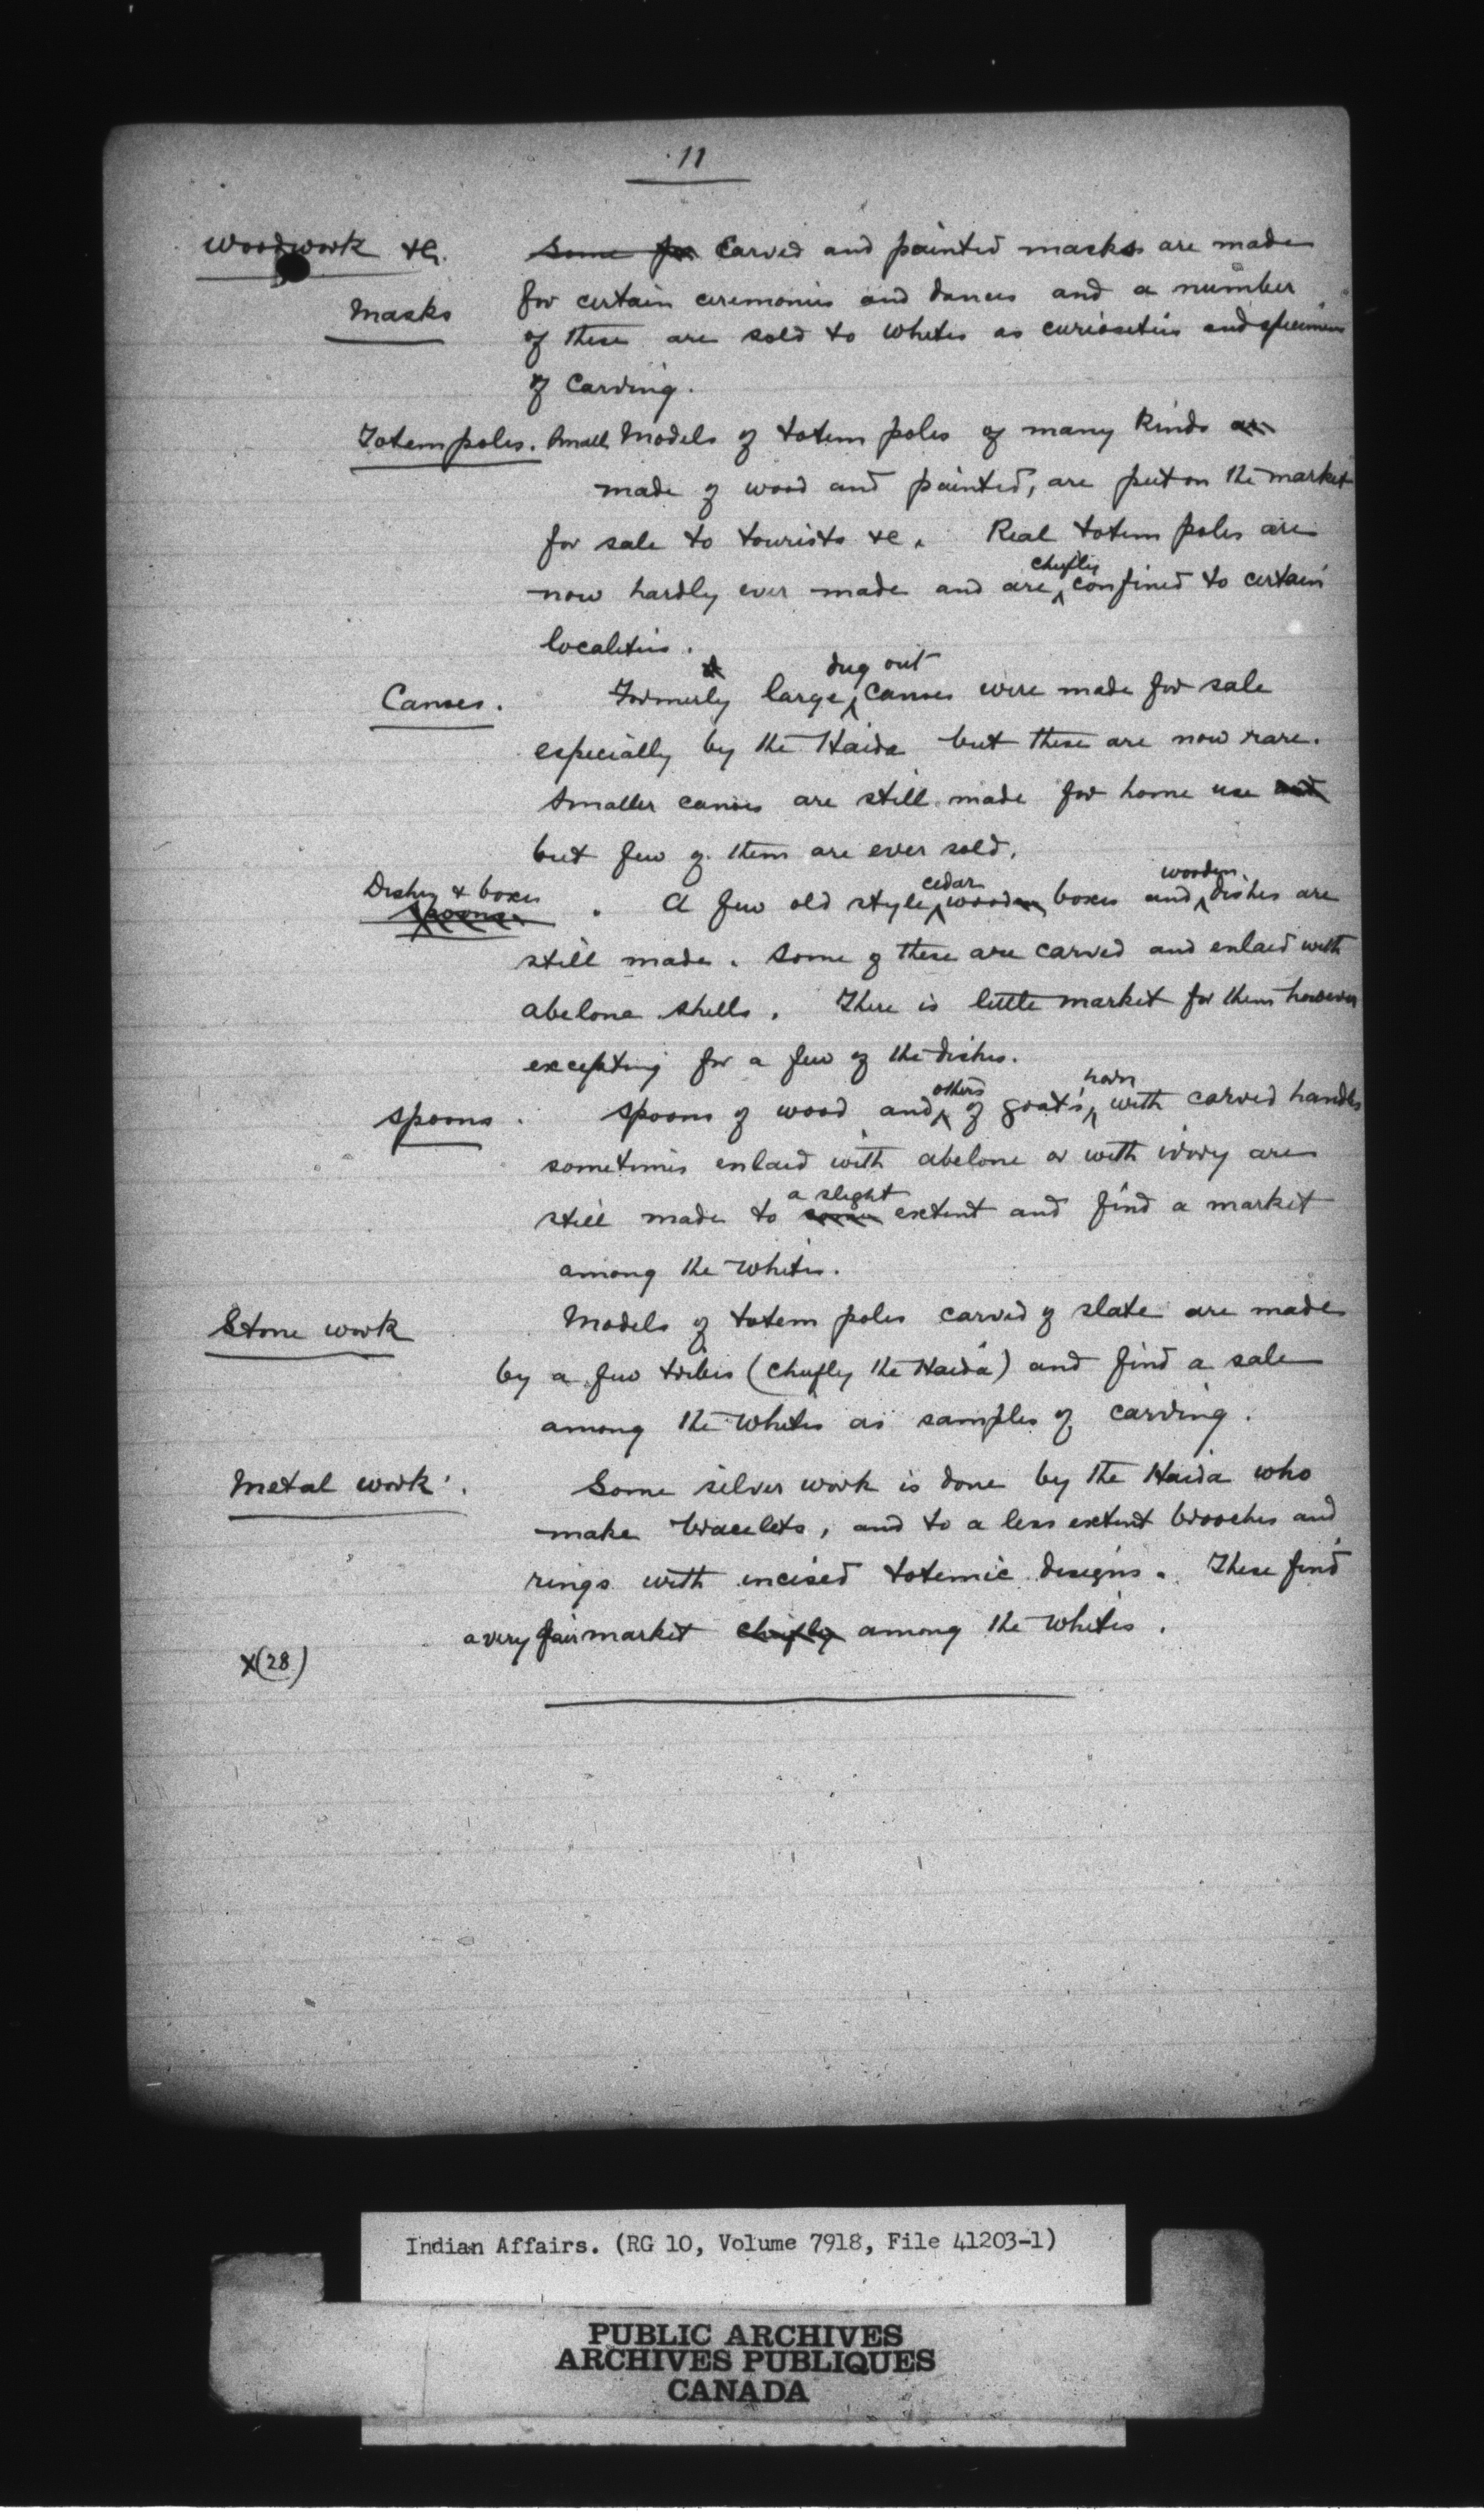 11
Woodwork &c. Some fr Carved and painted masks are made
Masks for certain ceremonies and dances and a number
of these are sold to whites as curiosities and specimens
of carving.
Totem poles. Small Models of totem poles of many kinds are
made of wood and painted, are put on the market
for sale to tourists &c. Real totem poles are
now hardly ever made and are chiefly confined to certain
localities.
Canoes. Formerly large dug out canoes were made for sale
especially by the Haida but these are now rare.
Smaller canoes are still made for home use and
but few of them are ever sold.
Dishes & boxes Spoons. A few old style cedar wooden boxes and wooden dishes are
still made. Some of these are carved and enlaid with
abelone shells. There is little market for them however
excepting for a few of the dishes.
Spoons. Spoons of wood and others of goat's horn with carved handles
sometimes enlaid with abelone or with ivory are
still made to some a slight extent and find a market
among the whites.
Stone work Models of totem poles carved of slate are made
by a few tribes (chiefly the Haida) and find a sale
among the whites as samples of carving.
Metal work. Some silver work is done by the Haida who
make bracelets, and to a less extent brooches and
rings with incised totemic designs. These find
a very fair market chiefly among the whites.
X(28)
Indian Affairs. (RG 10, Volume 7918, File 41203-1)
PUBLIC ARCHIVES
ARCHIVES PUBLIQUES
CANADA